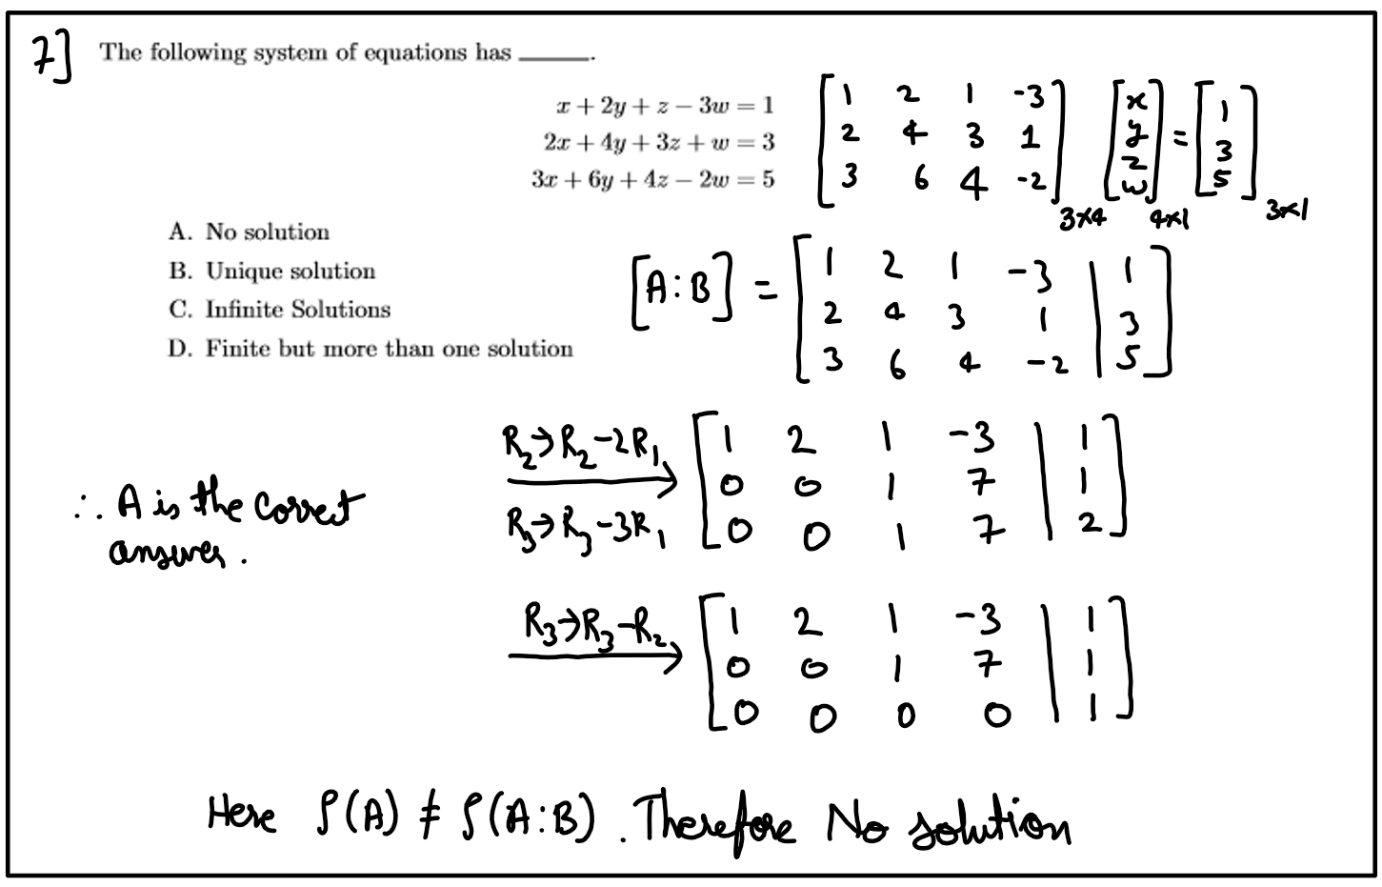 7] The following system of equations has ______.
x + 2y + z − 3w = 1
2x + 4y + 3z + w = 3
3x + 6y + 4z − 2w = 5
[1 2 1 -3] [x] = [1]
[2 4 3 1] [y] [3]
[3 6 4 -2] [z] [5]
[w]
3×4 4×1 3×1
A. No solution
B. Unique solution
C. Infinite Solutions
D. Finite but more than one solution
[A:B] = [1 2 1 -3 | 1]
[2 4 3 1 | 3]
[3 6 4 -2 | 5]
R₂→R₂-2R₁
R₃→R₃-3R₁
[1 2 1 -3 | 1]
[0 0 1 7 | 1]
[0 0 1 7 | 2]
∴ A is the correct
answer.
R₃→R₃-R₂
[1 2 1 -3 | 1]
[0 0 1 7 | 1]
[0 0 0 0 | 1]
Here ρ(A) ≠ ρ(A:B). Therefore No solution